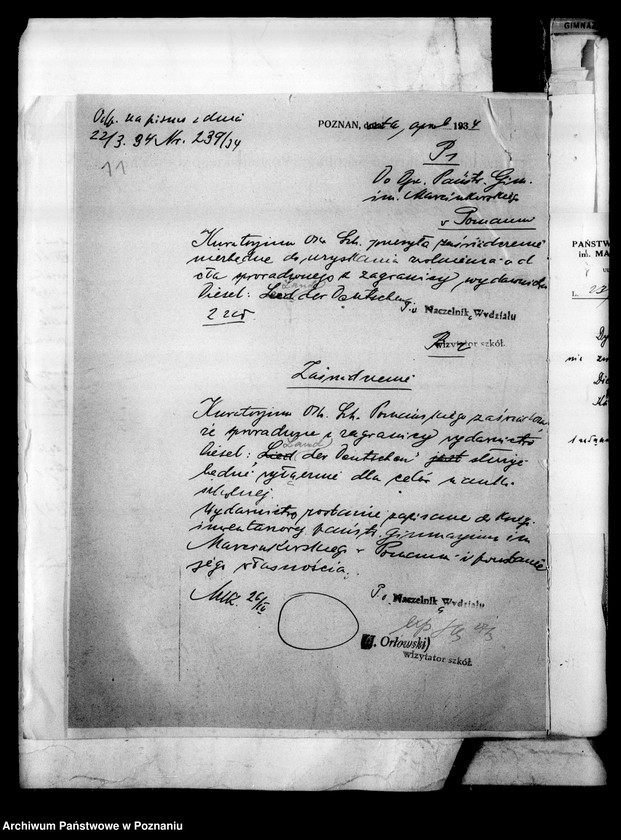 Odp. na pismo z dnia
22/3. 34 Nr. 239/34
11
POZNAŃ, 1934
Do Dyr. Państw. Gim.
im. Marcinkowskiego
w Poznaniu
Kuratorjum Okr. Szk. przesyła zaświadczenie
niezbędne do uzyskania zwolnienia od
cła sprowadzonego z zagranicy wydawnictwa
Diesel: Land der Deutschen
Naczelnik Wydziału
2 zał
wizytator szkół.
Zaświadczenie
Kuratorjum Okr. Szk. Poznańskiego zaświadcza
że sprowadzone z zagranicy wydawnictwo
Diesel: Land der Deutschen służyć
będzie wyłącznie dla celów nauki
szkolnej.
Wydawnictwo zostanie zapisane do księgi
inwentarzowej państw. gimnazjum im
Marcinkowskiego w Poznaniu i pozostanie
jego własnością.
Naczelnik Wydziału
(J. Orłowski)
wizytator szkół.
GIMNAZ
PAŃSTW
im. MA
L.
Archiwum Państwowe w Poznaniu